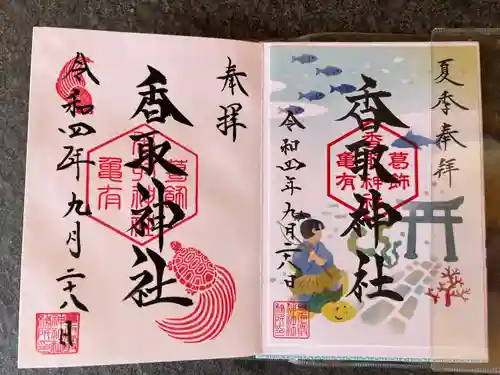 奉拝
香取神社
葛飾
香取神社
亀有
令和四年九月二十八日
夏季奉拝
香取神社
葛飾
香取神社
亀有
令和四年九月二十八日